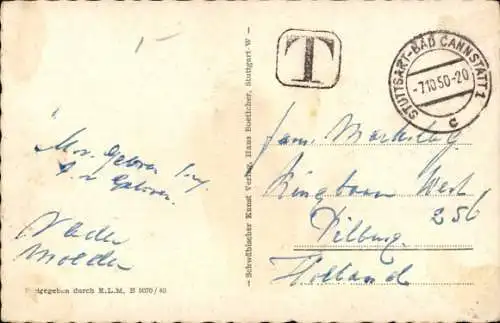 T
STUTTGART-BAD CANNSTATT 1
-7.10.50-20
c
Fam.
Ringbaan West
256
Tilburg.
Holland
Vader
Moeder
— Schwäbischer Kunst Verlag, Hans Boettcher, Stuttgart-W —
Freigegeben durch R.L.M. B 5070/40